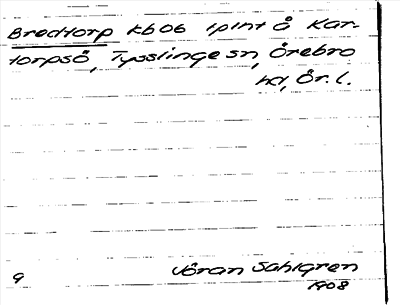 Bredtorp kb06 1plnt å Kar-
torpså, Tysslinge sn, Örebro
hd, Ör. l.
Jöran Sahlgren
9
1908